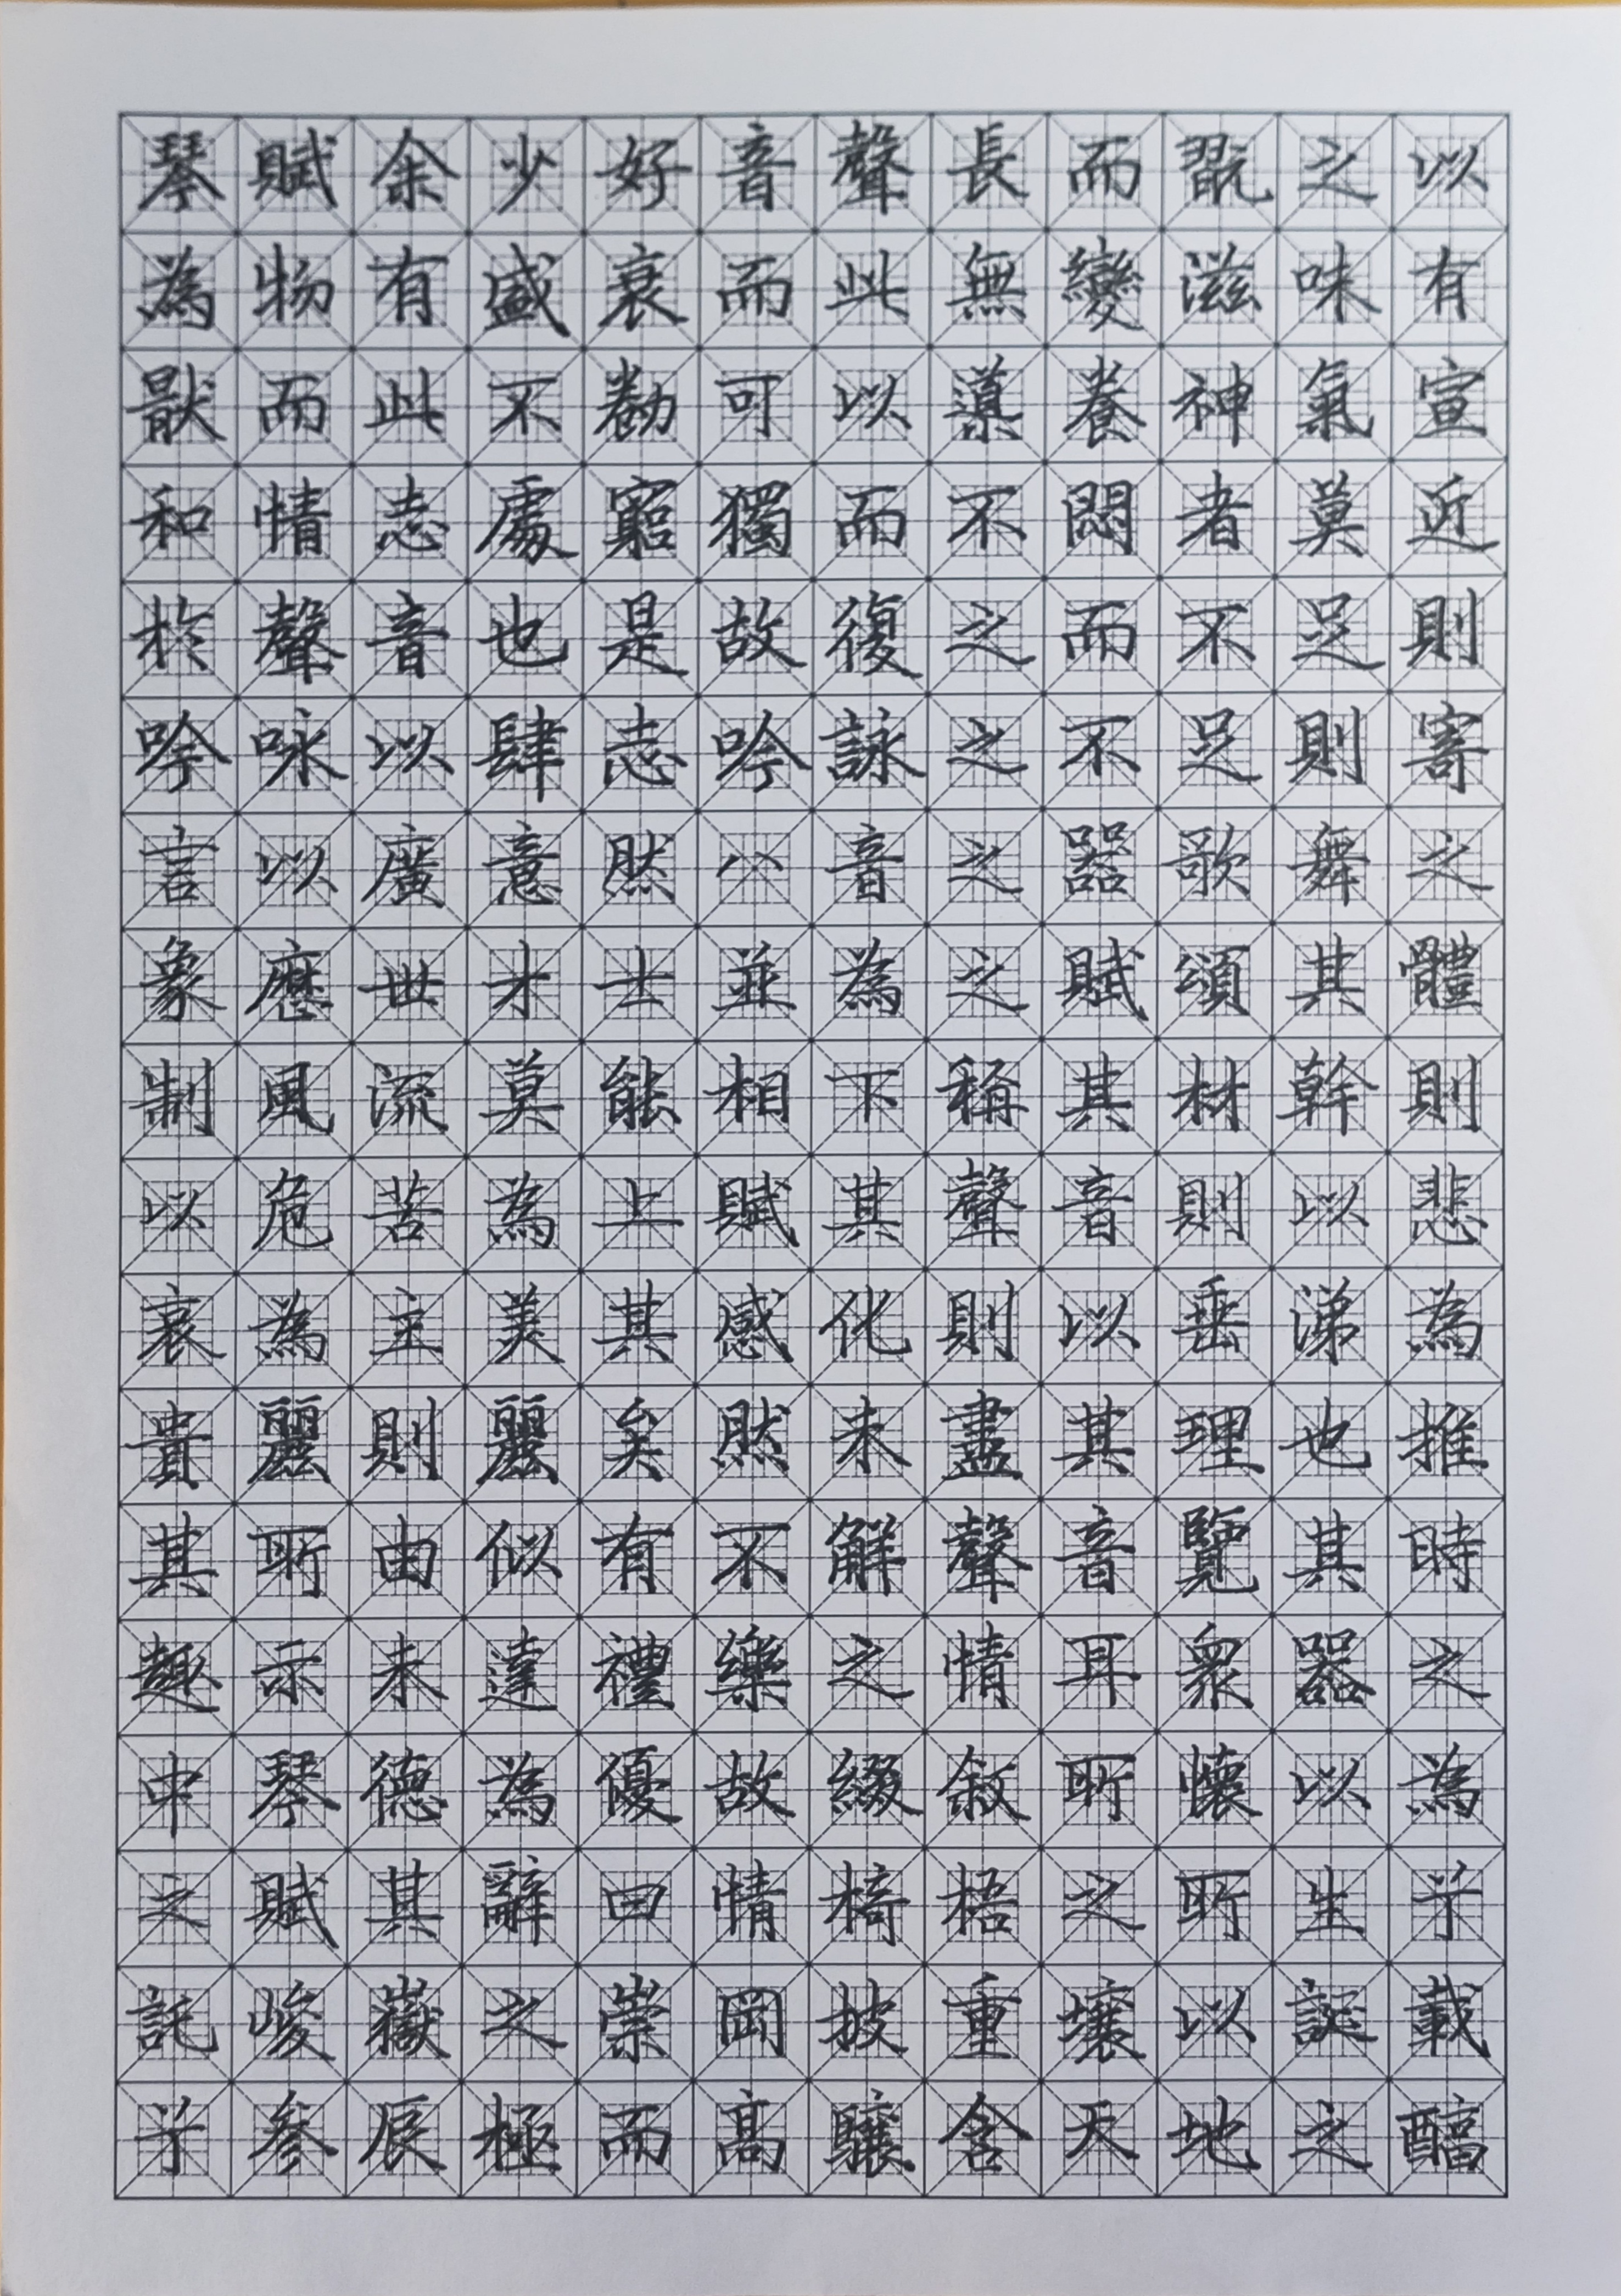 琴賦余少好音聲長而翫之以
為物有盛衰而此無變滋味有
猒而此不勌可以導養神氣宣
和情志處窮獨而不悶者莫近
於聲音也是故復之而不足則
吟咏以肆志吟詠之不足則寄
言以廣意然八音之器歌舞之
象歷世才士並為之賦頌其體
制風流莫能相下稱其材幹則
以危苦為上賦其聲音則以悲
哀為主美其感化則以垂涕為
貴麗則麗矣然未盡其理也推
其所由似有不解聲音覽其時
趣示未達禮樂之情耳衆器之
中琴德為優故綴敘所懷以為
之賦其辭曰情椅梧之所生兮
託峻嶽之崇岡披重壤以誕載
兮參辰極而高驤含天地之醕